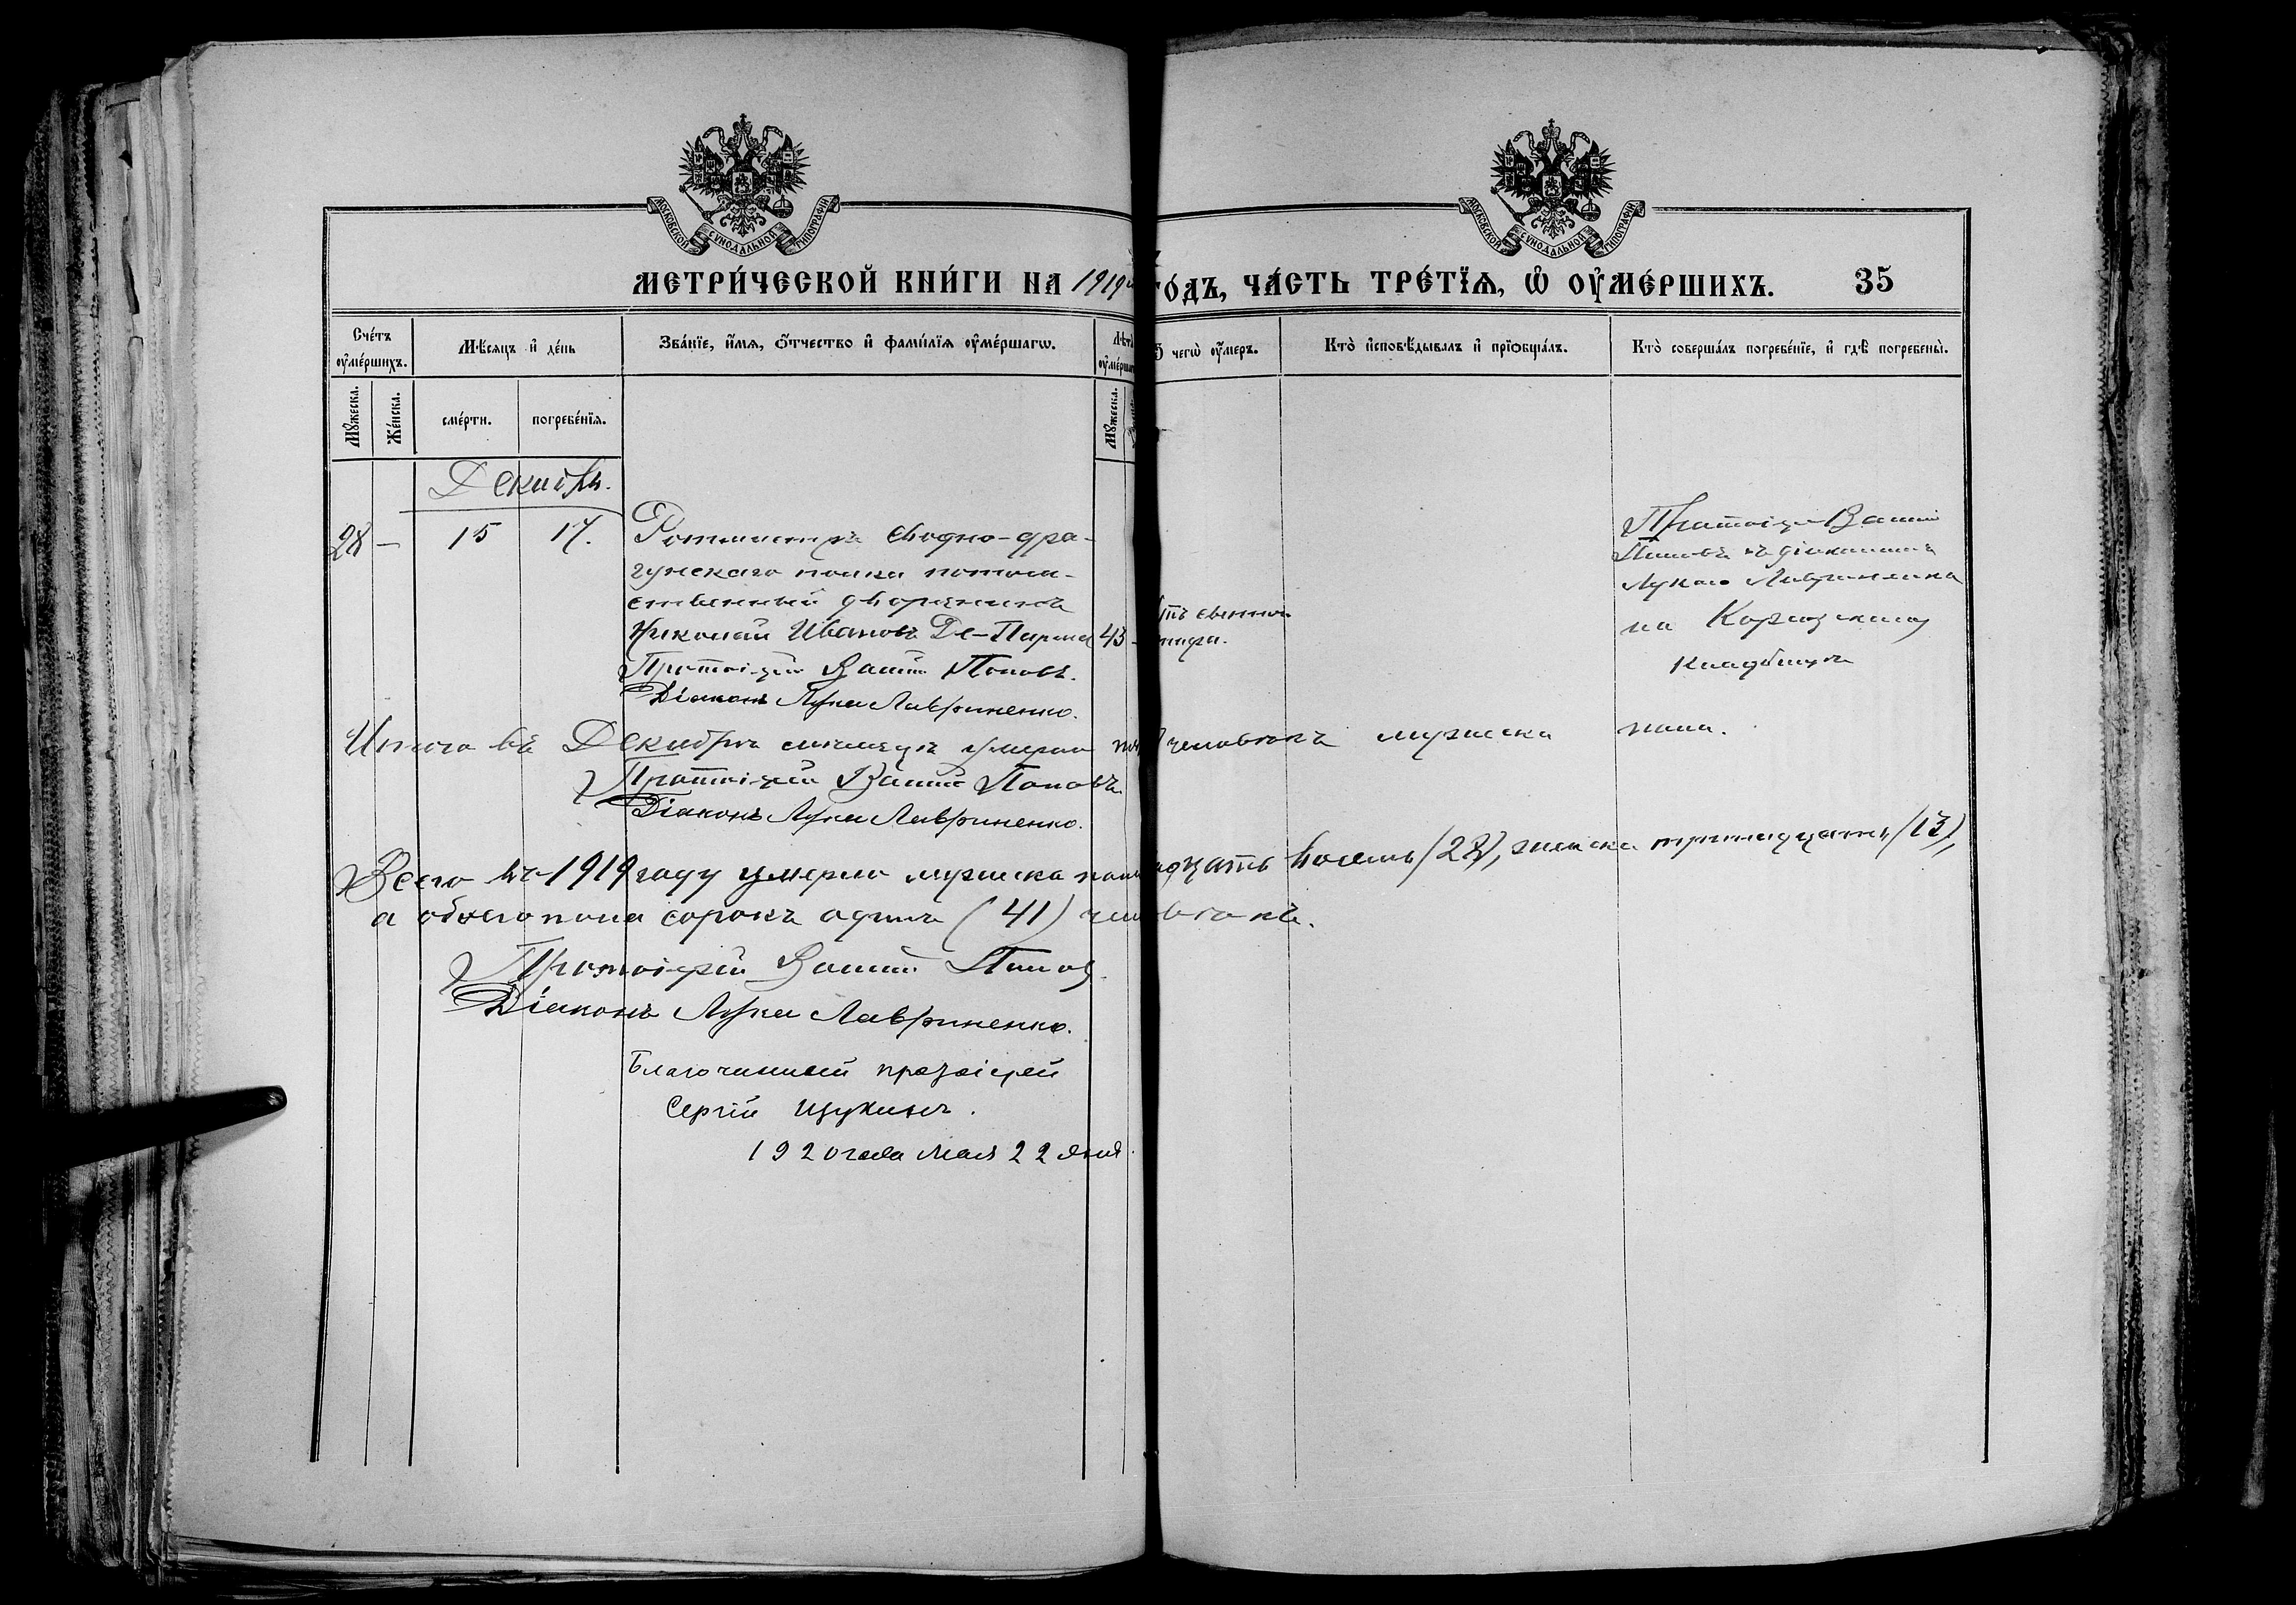 МОСКОВСКОЙ СѴНОДАЛЬНОЙ ТИПОГРАФІИ
МОСКОВСКОЙ СѴНОДАЛЬНОЙ ТИПОГРАФІИ
МЕТРИ́ЧЕСКОЙ КНИ́ГИ НА 1919 ГО́ДЪ, ЧА́СТЬ ТРЕ́ТЇѦ, Ѡ҆ ОУ҆МЕ́РШИХЪ. 35
Сче́тъ оу҆ме́ршихъ.
Мѣ́сяцъ и҆ де́нь
Зва́нїе, и҆́мѧ, ѻ҆́тчество и҆ фами́лїѧ оу҆ме́ршагѡ.
Лѣт
оу҆ме́рша
чегѡ̀ оу҆́меръ.
Кто̀ и҆сповѣ́дывалъ и҆ прїѡбща́лъ.
Кто̀ соверша́лъ погребе́нїе, и҆ гдѣ̀ погребены̀.
Мꙋ́жеска.
Же́нска.
сме́рти.
погребе́нїѧ.
Мꙋ́жеска.
Декабрь.
28 — 15 17. Ротмистръ Сводно-дра-
гунскаго полка потом-
ственный дворянинъ
Николай Ивановъ Де- 43
Протоіерей Василій Поповъ.
Діаконъ Лука Лавриненко.
тифа.
Протоіерей Василій
Поповъ съ діакономъ
Лукою Лавриненко
на
кладбищѣ
Итого въ Декабрѣ мѣсяцѣ умерло человѣкъ мужеска пола.
Протоіерей Василій Поповъ.
Діаконъ Лука Лавриненко.
Всего въ 1919 году умерло мужеска пола двадцать восемь (28), женска тринадцать (13),
а обоего пола сорокъ одинъ (41) человѣкъ.
Протоіерей Василій Попов
Діаконъ Лука Лавриненко.
Благочинный протоіерей
Сергій Щукинъ.
1920 года Мая 22 дня.